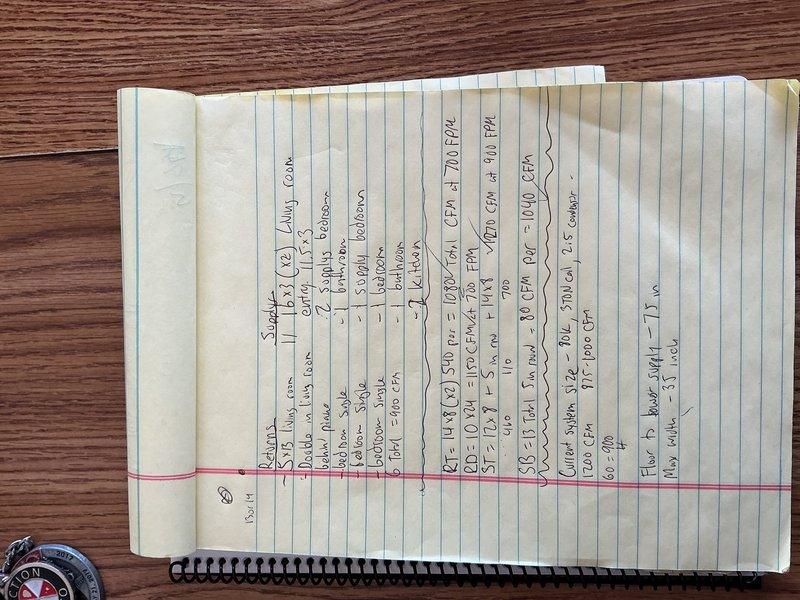 13 or 14
Returns Supply
- 5x13 living room 11 16x3 (x2) Living room
- Double in living room entry, 11.5x3
behind piano 2 supplys bedroom
- bedroom single - 1 bathroom
- bedroom single - 1 supply bedroom
- bedroom single - 1 bedroom
6 Total = 900 CFM - 1 bathroom
- 2 kitchen
RT = 14x8 (x2) 540 per = 1080 Total CFM at 700 FPM
RD = 10x24 = 1150 CFM at 700 FPM
ST = 12x8 + 5 in rnd + 14x8 1270 CFM at 900 FPM
460 110 700
SB = 13 Total 5 in round = 80 CFM per = 1040 CFM
Current system size - 80K, 3TON coil, 2.5 condenser -
1200 CFM 875-1000 CFM
60 = 900
Floor to lowest supply - 75 in
Max width - 35 inch
2017
CTION